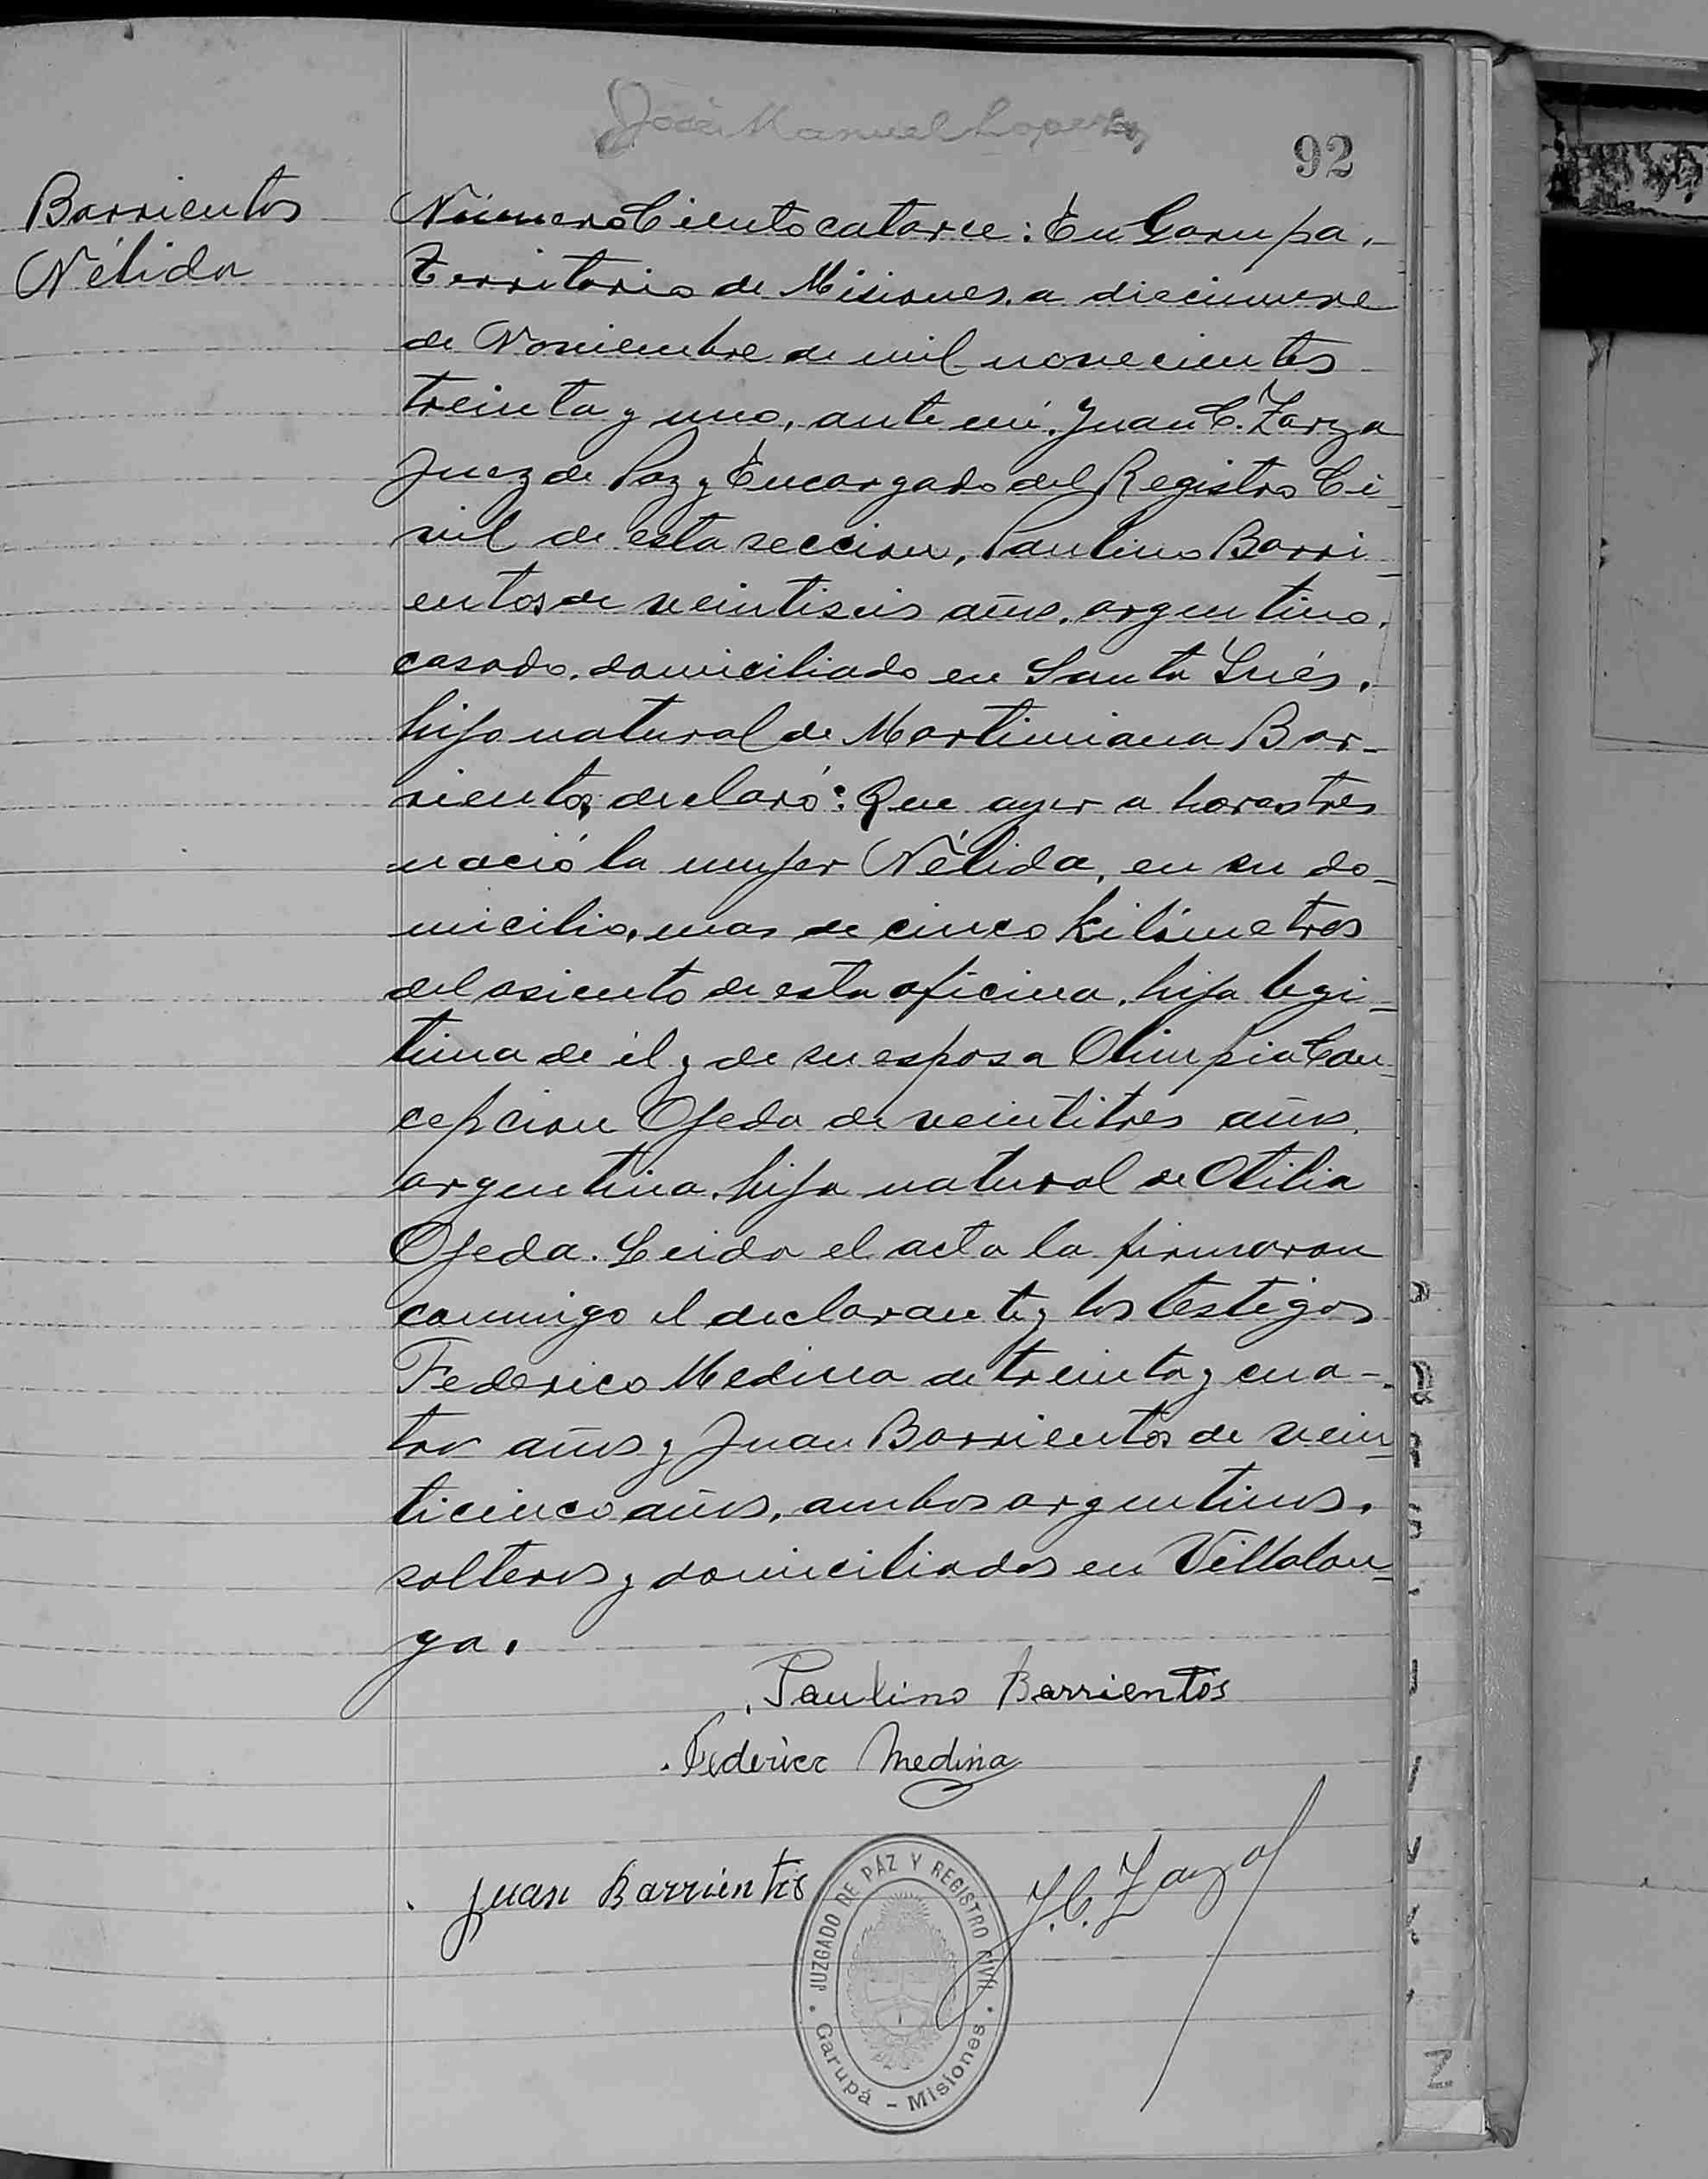 José Manuel Lopez
92
Barrientos
Nélida
Número Ciento catorce: En Garupa,
Territorio de Misiones, a diecinueve
de Noviembre de mil novecientos
treinta y uno, ante mí, Juan C. Zarza
Juez de Paz y Encargado del Registro Ci-
vil de esta seccion, Paulino Barri-
entos de veintiseis años, argentino,
casado, domiciliado en Santa Inés,
hijo natural de Martiniana Bar-
rientos, declaró: Que ayer a horas tres
nació la mujer Nélida, en su do-
micilio, mas de cinco kilómetros
del asiento de esta oficina, hija legi-
tima de él y de su esposa Olimpia Con-
cepcion Ojeda de veintitres años,
argentina, hija natural de Otilia
Ojeda. Leida el acta la firmaron
conmigo el declarante y los testigos
Federico Medina de treinta y cua-
tro años y Juan Barrientos de vein-
ticinco años, ambos argentinos,
solteros y domiciliados en Villalon-
ga.
Paulino Barrientos
Federico Medina
Juan Barrientos
J. C. Zarza
JUZGADO DE PAZ Y REGISTRO CIVIL
Garupá - Misiones